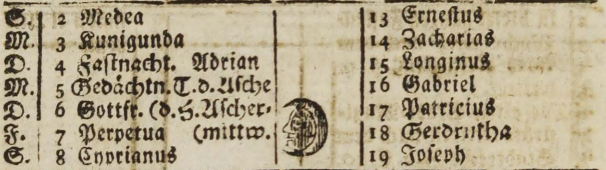 S. 2 Medea 13 Ernestus
M. 3 Kunigunda 14 Zacharias
D. 4 Fastnacht. Adrian 15 Longinus
M. 5 Gedächtn. T. d. Asche 16 Gabriel
D. 6 Gottfr. (d. H. Ascher- 17 Patricius
F. 7 Perpetua (mittw. 18 Gerdrutha
S. 8 Cyprianus 19 Joseph